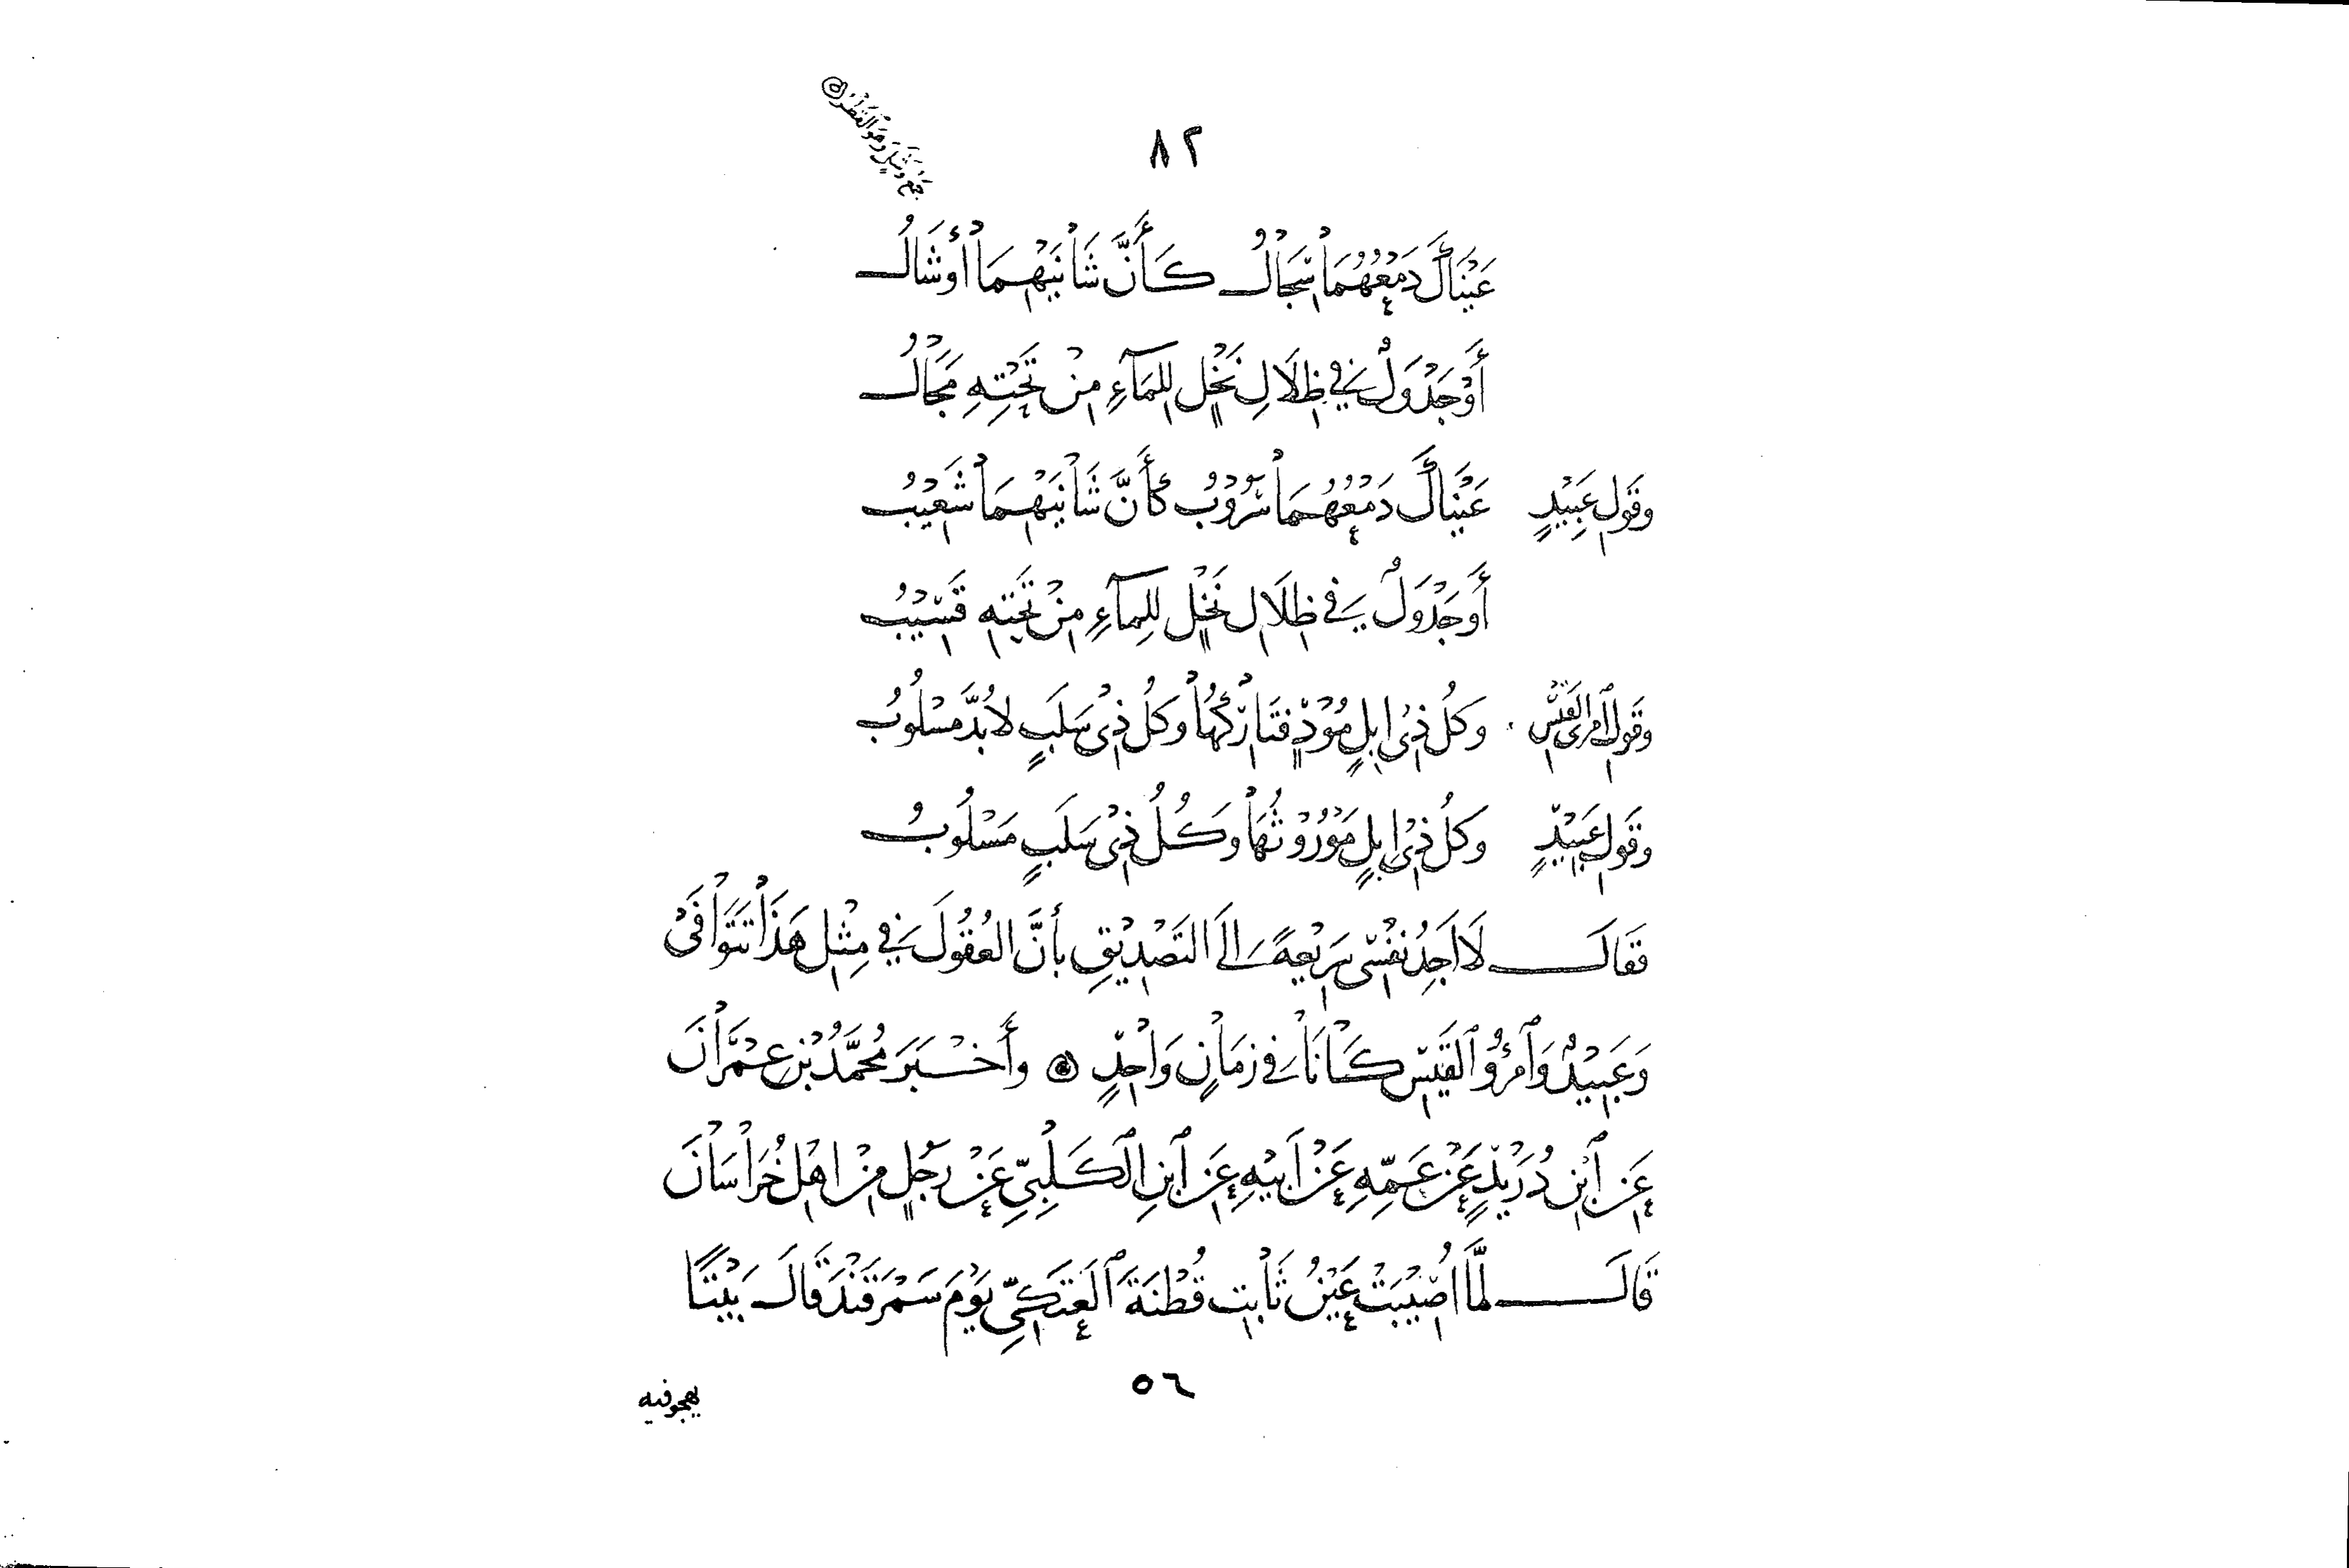 ٨٢
جمع وشل وهو القطر
عَيْنَاكَ دَمْعُهُمَا سِجَالُ كَأَنَّ شَأْنَيْهِمَا أَوْشَالُ
أَوْ جَدْوَلٌ فِي ظِلَالِ نَخْلٍ لِلْمَآءِ مِنْ تَحْتِهِ مَجَالُ
وقَولِ عَبِيْدٍ عَيْنَاكَ دَمْعُهُمَا سَرُوْبُ كَأَنَّ شَأْنَيْهِمَا شَعِيْبُ
أَوْ جَدْوَلٌ فِي ظِلَالِ نَخْلٍ لِلْمَآءِ مِنْ تَحْتِهِ قَسِيْبُ
وقَولِ ٱمرئ القَيْسِ وَكلُّ ذِىْ اِبلٍ مُوْدٍ فتَارِكُهَا وَكلُّ ذِىْ سَلَبٍ لا بُدَّ مَسْلُوبُ
وقَولِ عَبِيْدٍ وَكلُّ ذِىْ اِبلٍ مَوْرُوْثُهَا وَكُلُّ ذِىْ سَلَبٍ مَسْلُوبُ
فقَالَ لَا اَجِدُ نفْسِى سَرِيْعةً اِلَى التَصْدِيْقِ بأَنَّ العُقُولَ فِي مِثْلِ هَذَا تَتَوَافَىْ
وَعَبِيْدٌ وَٱمْرُؤُ ٱلقَيْسِ كَانَا فِي زمَانٍ وَاْحِدٍ وأَخْبَرَ مُحَمَّدُ بْنُ عِمْرَانَ
عَنِ ٱبْنِ دُرَيْدٍ عَنْ عَمِّهِ عَنْ اَبيْهِ عَنِ ٱبْنِ الْكَلْبِيِّ عَنْ رَجُلٍ مِنْ اهْلِ خُرَاسَانَ
قَالَ لمَّا اُصِيْبَتْ عَيْنُ ثَابِتِ قُطْنَةَ ٱلعَتَكِيِّ يَوْمَ سَمَرْقَنْدَ قَالَ بَيْتًا
٥٦
يهجو فيه